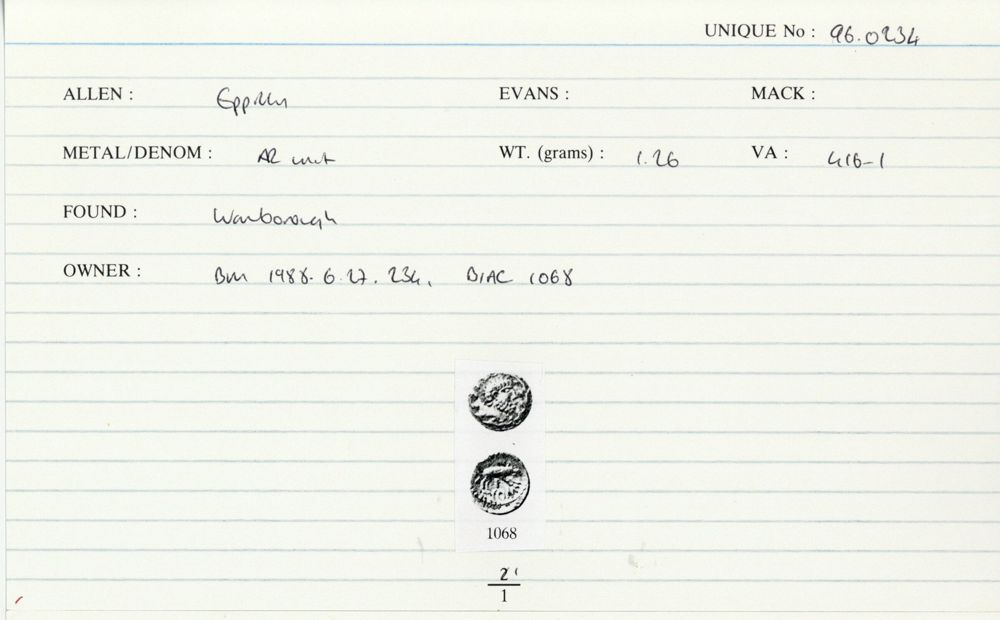 UNIQUE No : 96.0234
ALLEN : Eppillus EVANS : MACK :
METAL/DENOM : AR unit WT. (grams) : 1.26 VA : 416-1
FOUND : Wanborough
OWNER : BM 1988.6.27.234, BIAC 1068
1068
2
1